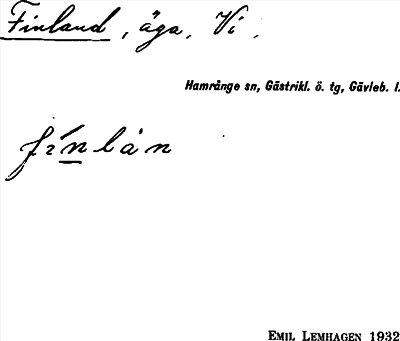 Finland, äga, Vi,
Hamrånge sn, Gästrikl. ö. tg, Gävleb. l.
fínlån
EMIL LEMHAGEN 1932